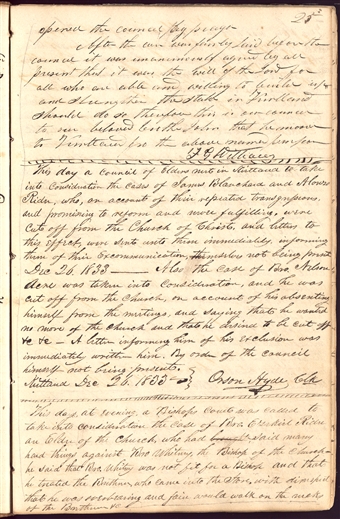 25
opened the council by prayer
After the case was fairly laid before the
council it was unanimously agreed by all
present that it was the will of the Lord for
all who are able and willing to build up
and strengthen the stake in Kirtland
should do so therefore this is our council
to our beloved brother John that he move
to Kirtland for the above named purpose
F G Williams
This day a council of elders met in Kirtland to take
into Consideration the Cases of James Blanchard and Alonzo
Rider, who, on account of their repeated transgressions,
and promising to reform and never fulfilling, were
Cut off from the Church of Christ, and letters to
this effect, were sent unto them immediately, informing
them of their Excommunication, themselves not being present
Dec 26. 1833 — Also the Case of Bro. Nelson
Acre was taken into Consideration, and he was
cut off from the Church, on account of his absenting
himself from the meetings, and saying that he wanted
no more of the Church and that he desired to be cut off
&c &c — A letter informing him of his exclusion was
immediately written him. By order of the council
himself not being present.
Kirtland Dec 26. 1833 — Orson Hyde, Clk
This day, at evening, a Bishops Court was called to
take into consideration the case of Bro. Ezekiel Rider
an Elder of the Church, who had said many
hard things against Bro Whitney, the Bishop of the Church
he said that Bro. Whitney was not fit for a Bishop and that
he treated the Brethren, who came into the Store, with disrespect
that he was overbearing and fain would walk on the necks
of the Brethren &c